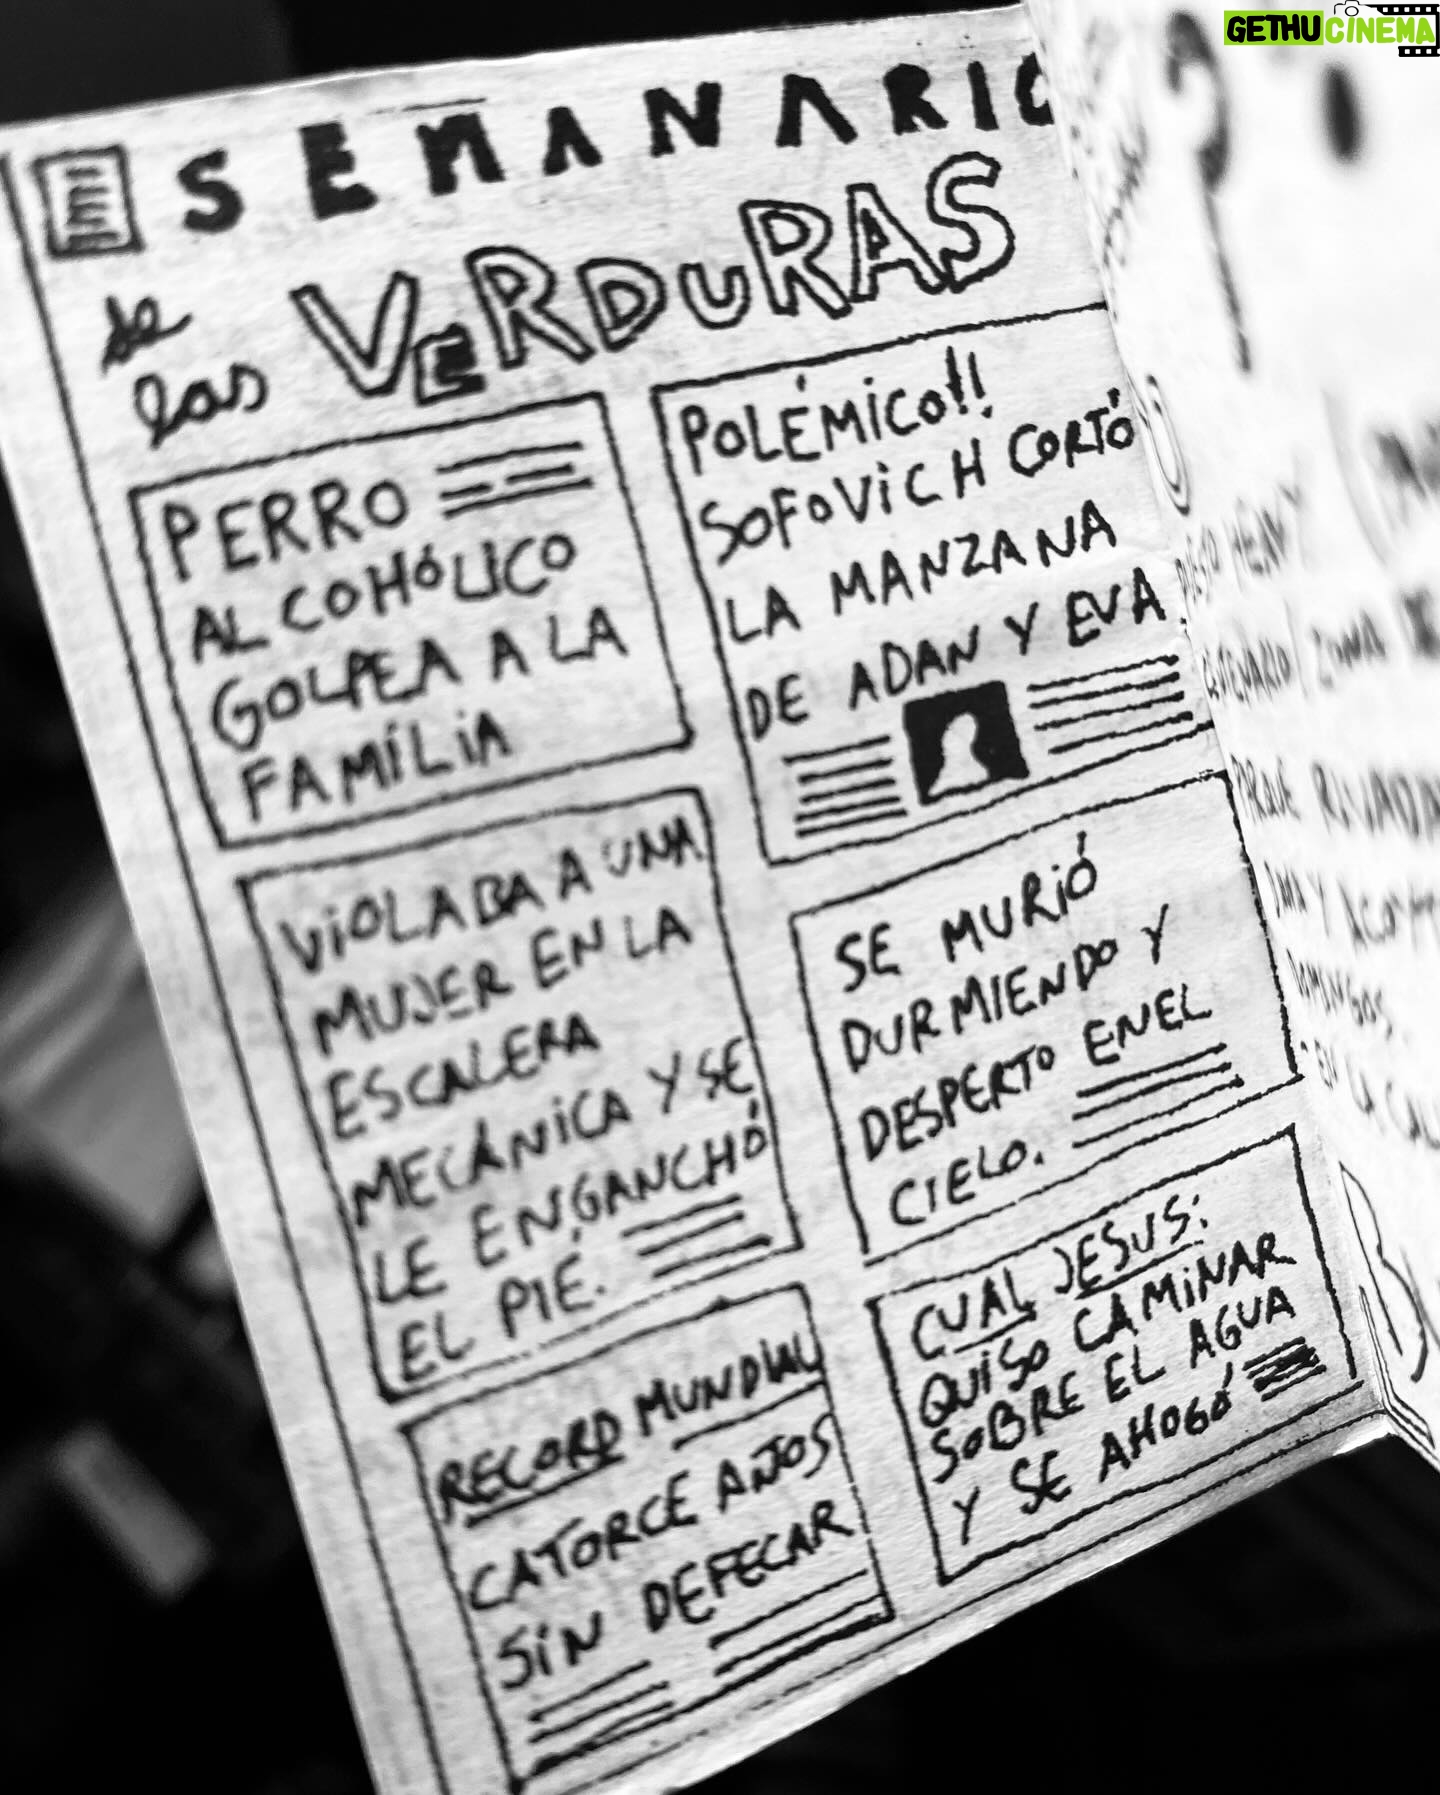 GETHUCINEMA
SEMANARIO
de las VERDURAS
PERRO
ALCOHÓLICO
GOLPEA A LA
FAMÍLIA
POLÉMICO!!
SOFOVICH CORTÓ
LA MANZANA
DE ADAN Y EVA
VIOLABA A UNA
MUJER EN LA
ESCALERA
MECÁNICA Y SE
LE ENGANCHÓ
EL PIÉ.
SE MURIÓ
DURMIENDO Y
DESPERTO EN EL
CIELO.
RECORD MUNDIAL
CATORCE AÑOS
SIN DEFECAR
CUAL JESUS:
QUISO CAMINAR
SOBRE EL AGUA
Y SE AHOGÓ
?